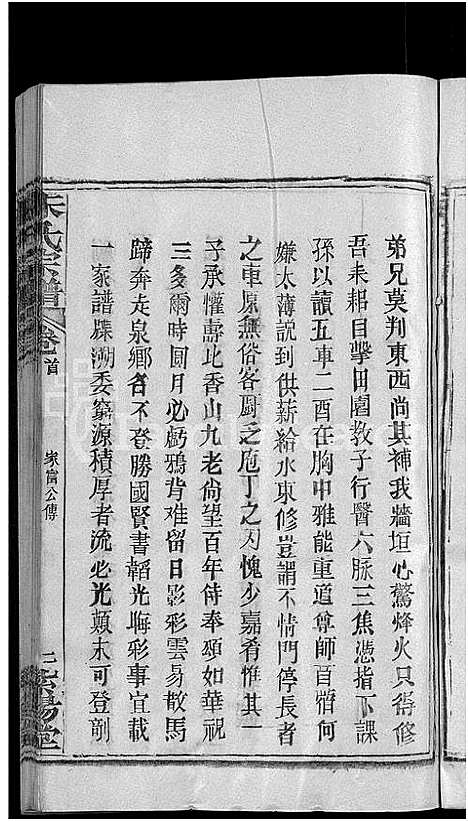 弟兄莫判東西尚其補我牆垣心驚烽火只得修
吾耒耜目擊田園敎子行醫六脈三焦憑指下課
孫以讀五車二酉在胸中雅能重道尊師百稽何
嫌太薄說到供薪給水東修豈謂不情門停長者
之車原無俗客厨乏庖丁之刃愧少嘉肴惟其一
子承懽壽比香山九老尙望百年侍奉頌如華祝
三多爾時圓月必虧鴉背难留日影彩雲易散馬
蹄奔走泉鄉名不登勝國賢書韜光晦彩事宜載
一家譜牒溯委窮源積厚者流必光顛末可登剞
朱氏宗譜
卷首
家富公傳
二
紫陽堂